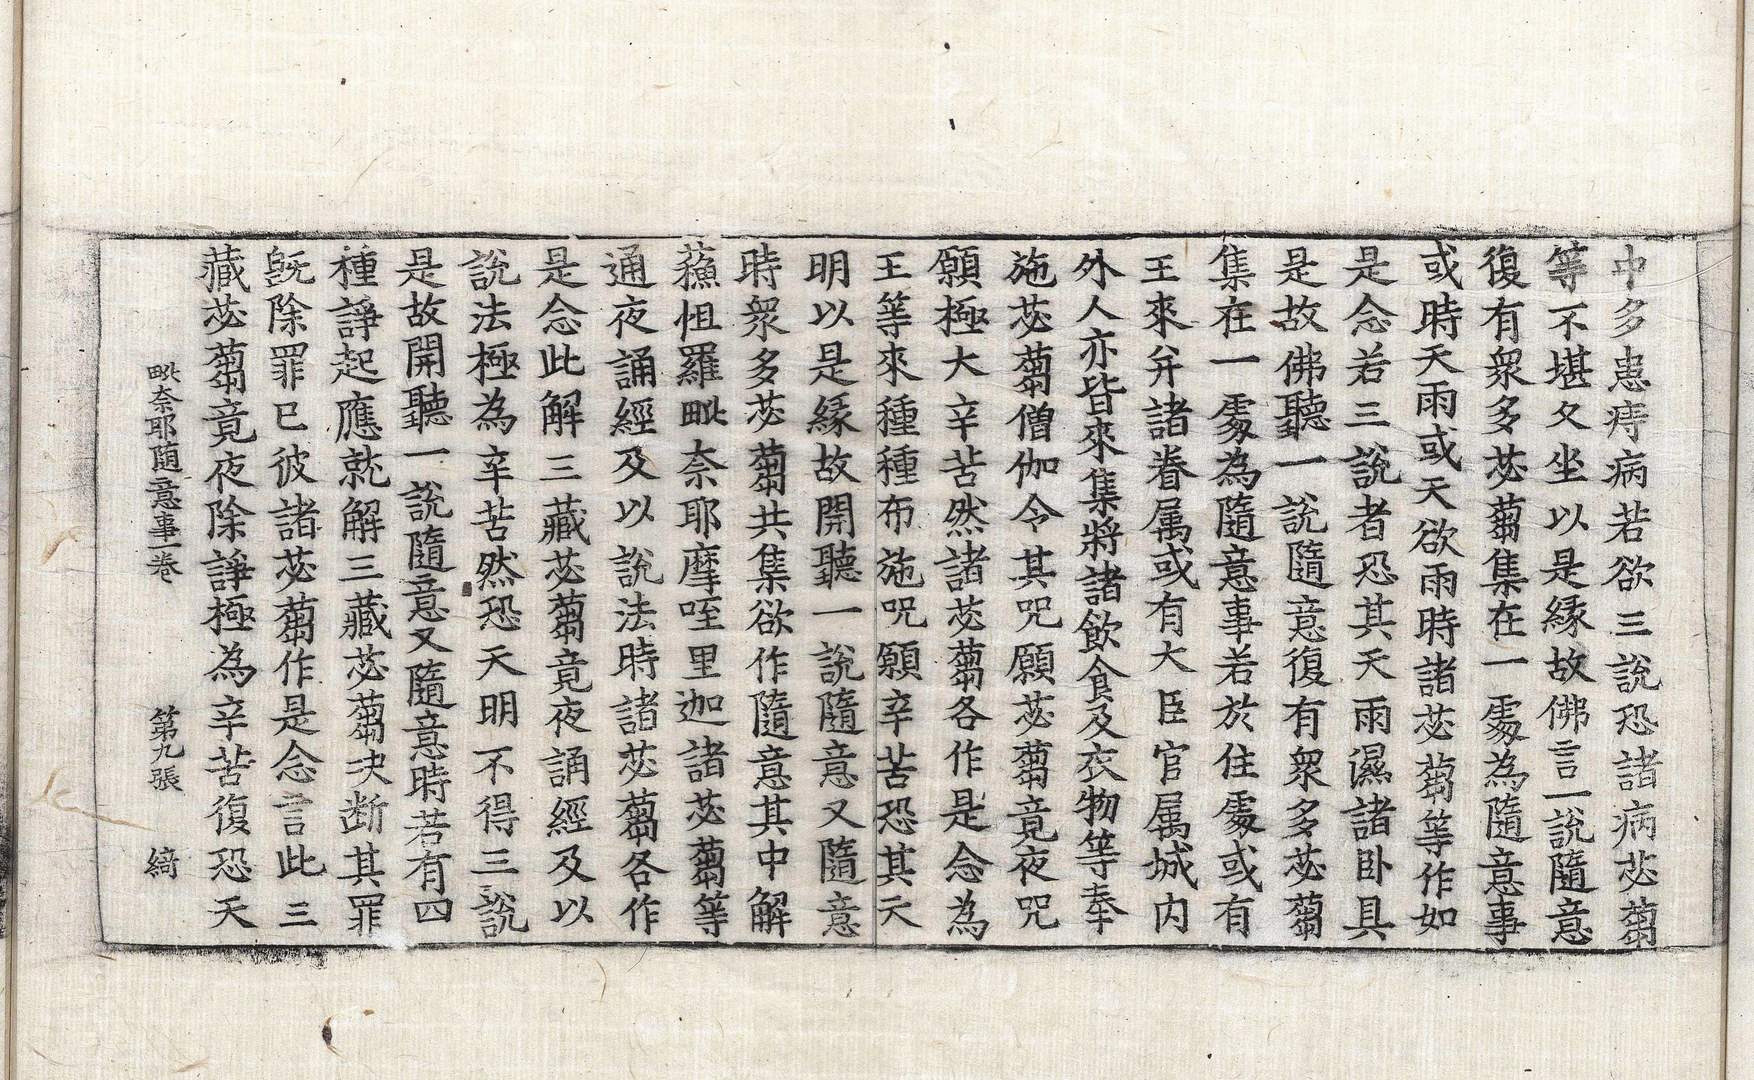 中多患痔病若欲三說恐諸病苾蒭
等不堪久坐以是縁故佛言一說隨意
復有衆多苾蒭集在一處為隨意事
或時天雨或天欲雨時諸苾蒭等作如
是念若三說者恐其天雨濕諸卧具
是故佛聽一說隨意復有衆多苾蒭
集在一處為隨意事若於住處或有
王來并諸眷属或有大臣官属城内
外人亦皆來集將諸飲食及衣物等奉
施苾蒭僧伽令其咒願苾蒭竟夜咒
願極大辛苦然諸苾蒭各作是念為
王等來種種布施咒願辛苦恐其天
明以是縁故開聽一說隨意又隨意
時衆多苾蒭共集欲作隨意其中解
蘓怛羅毗奈耶摩咥里迦諸苾蒭等
通夜誦經及以說法時諸苾蒭各作
是念此解三藏苾蒭竟夜誦經及以
說法極為辛苦然恐天明不得三說
是故開聽一說隨意又隨意時若有四
種諍起應就解三藏苾蒭决断其罪
旣除罪已彼諸苾蒭作是念言此三
藏苾蒭竟夜除諍極為辛苦復恐天
毗奈耶随意事一卷 第九張 綺